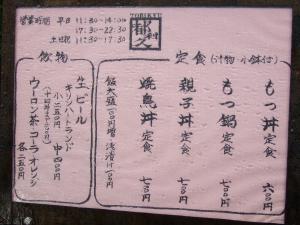 営業時間 平日 11:30-14:00
17:30-22:30
土日祝 11:30-17:30
TORIKYU
定食(汁物・小鉢付)
もつ丼定食 六〇〇円
もつ鍋定食 七〇〇円
親子丼定食 七〇〇円
焼鳥丼定食 七〇〇円
飯大盛一〇〇円増 浅漬け一〇〇円
飲物
生ビール
キリンハートランド
小二五〇円 中四〇〇円
ウーロン茶・コーラ・オレンジ
各二五〇円